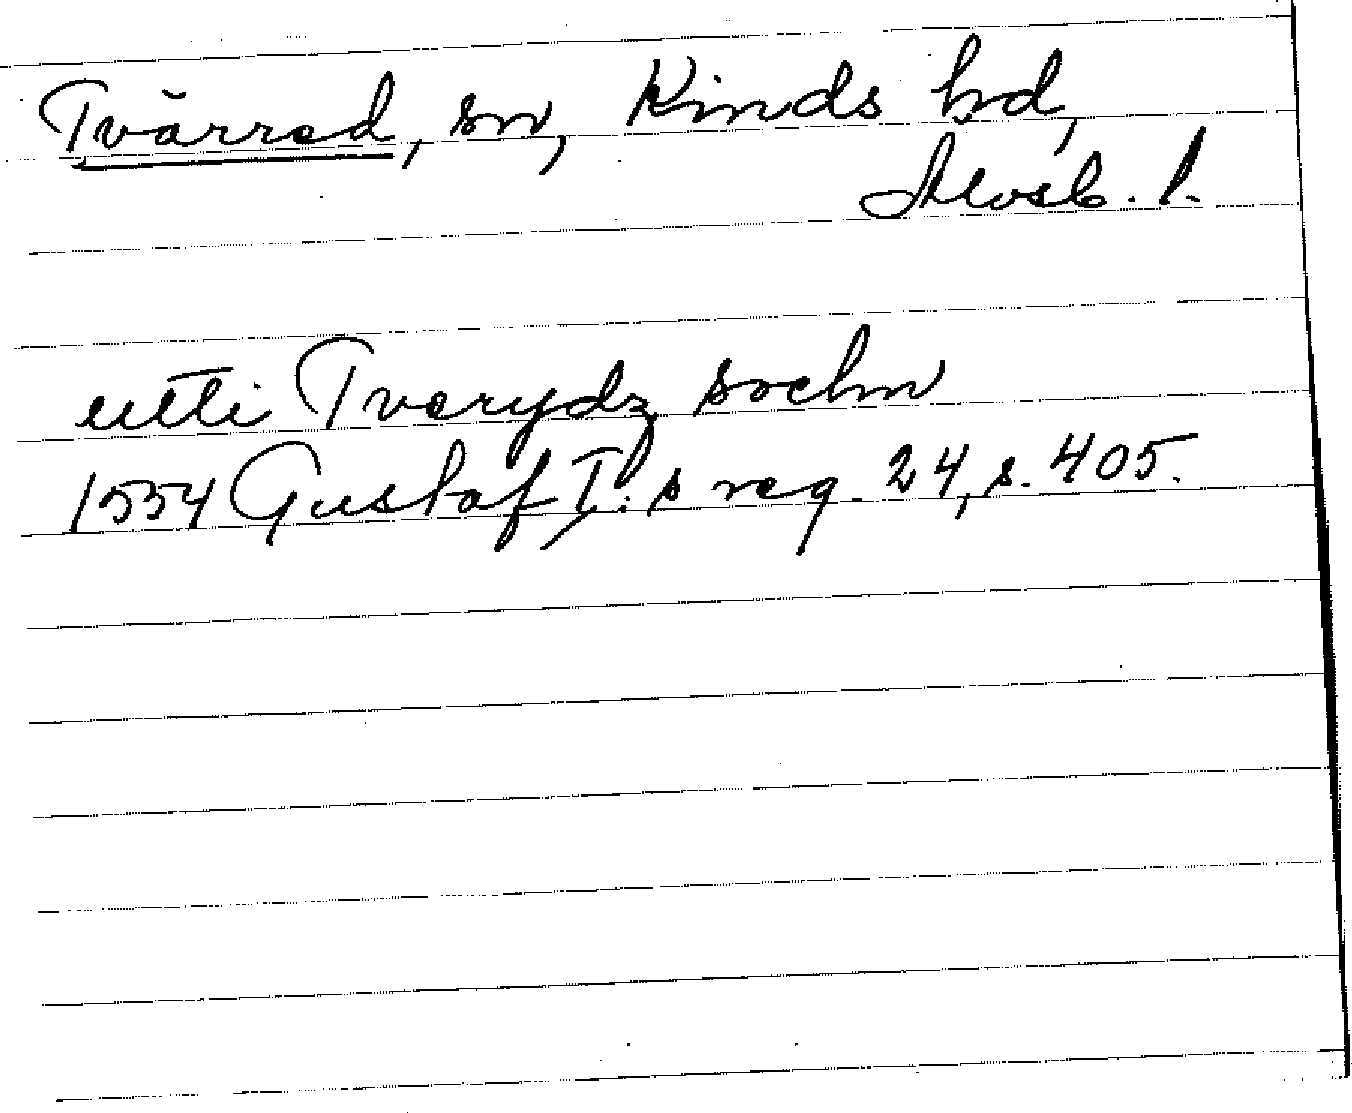 Tvärred, sn, Kinds hd,
Älvsb. l.
utti Tverydz sochn
1554 Gustaf I:s reg. 24, s. 405.